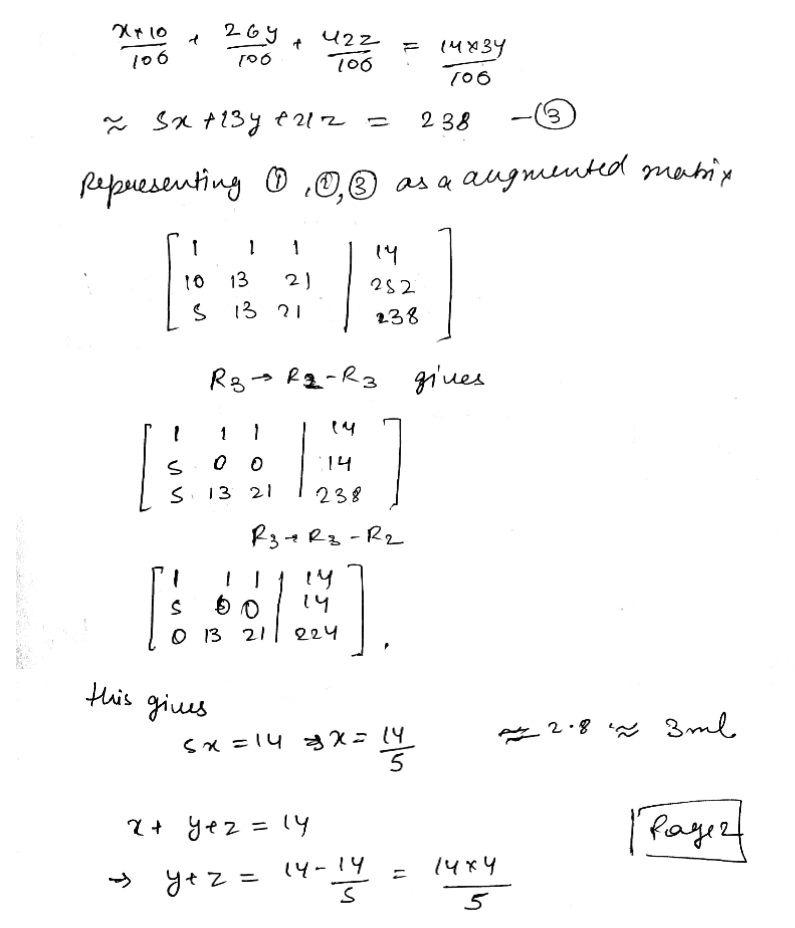 x*10/106 + 26y/106 + 42z/106 = 14*34/106
≈ 5x + 13y + 21z = 238 — ③
Representing ①, ②, ③ as a augmented matrix
[ 1 1 1 | 14
10 13 21 | 252
5 13 21 | 238 ]
R3 → R2 - R3 gives
[ 1 1 1 | 14
5 0 0 | 14
5 13 21 | 238 ]
R3 → R3 - R2
[ 1 1 1 | 14
5 0 0 | 14
0 13 21 | 224 ].
this gives
5x = 14 ⇒ x = 14/5 ≈ 2.8 ≈ 3ml
x + y + z = 14
→ y + z = 14 - 14/5 = 14*4/5
Page 2